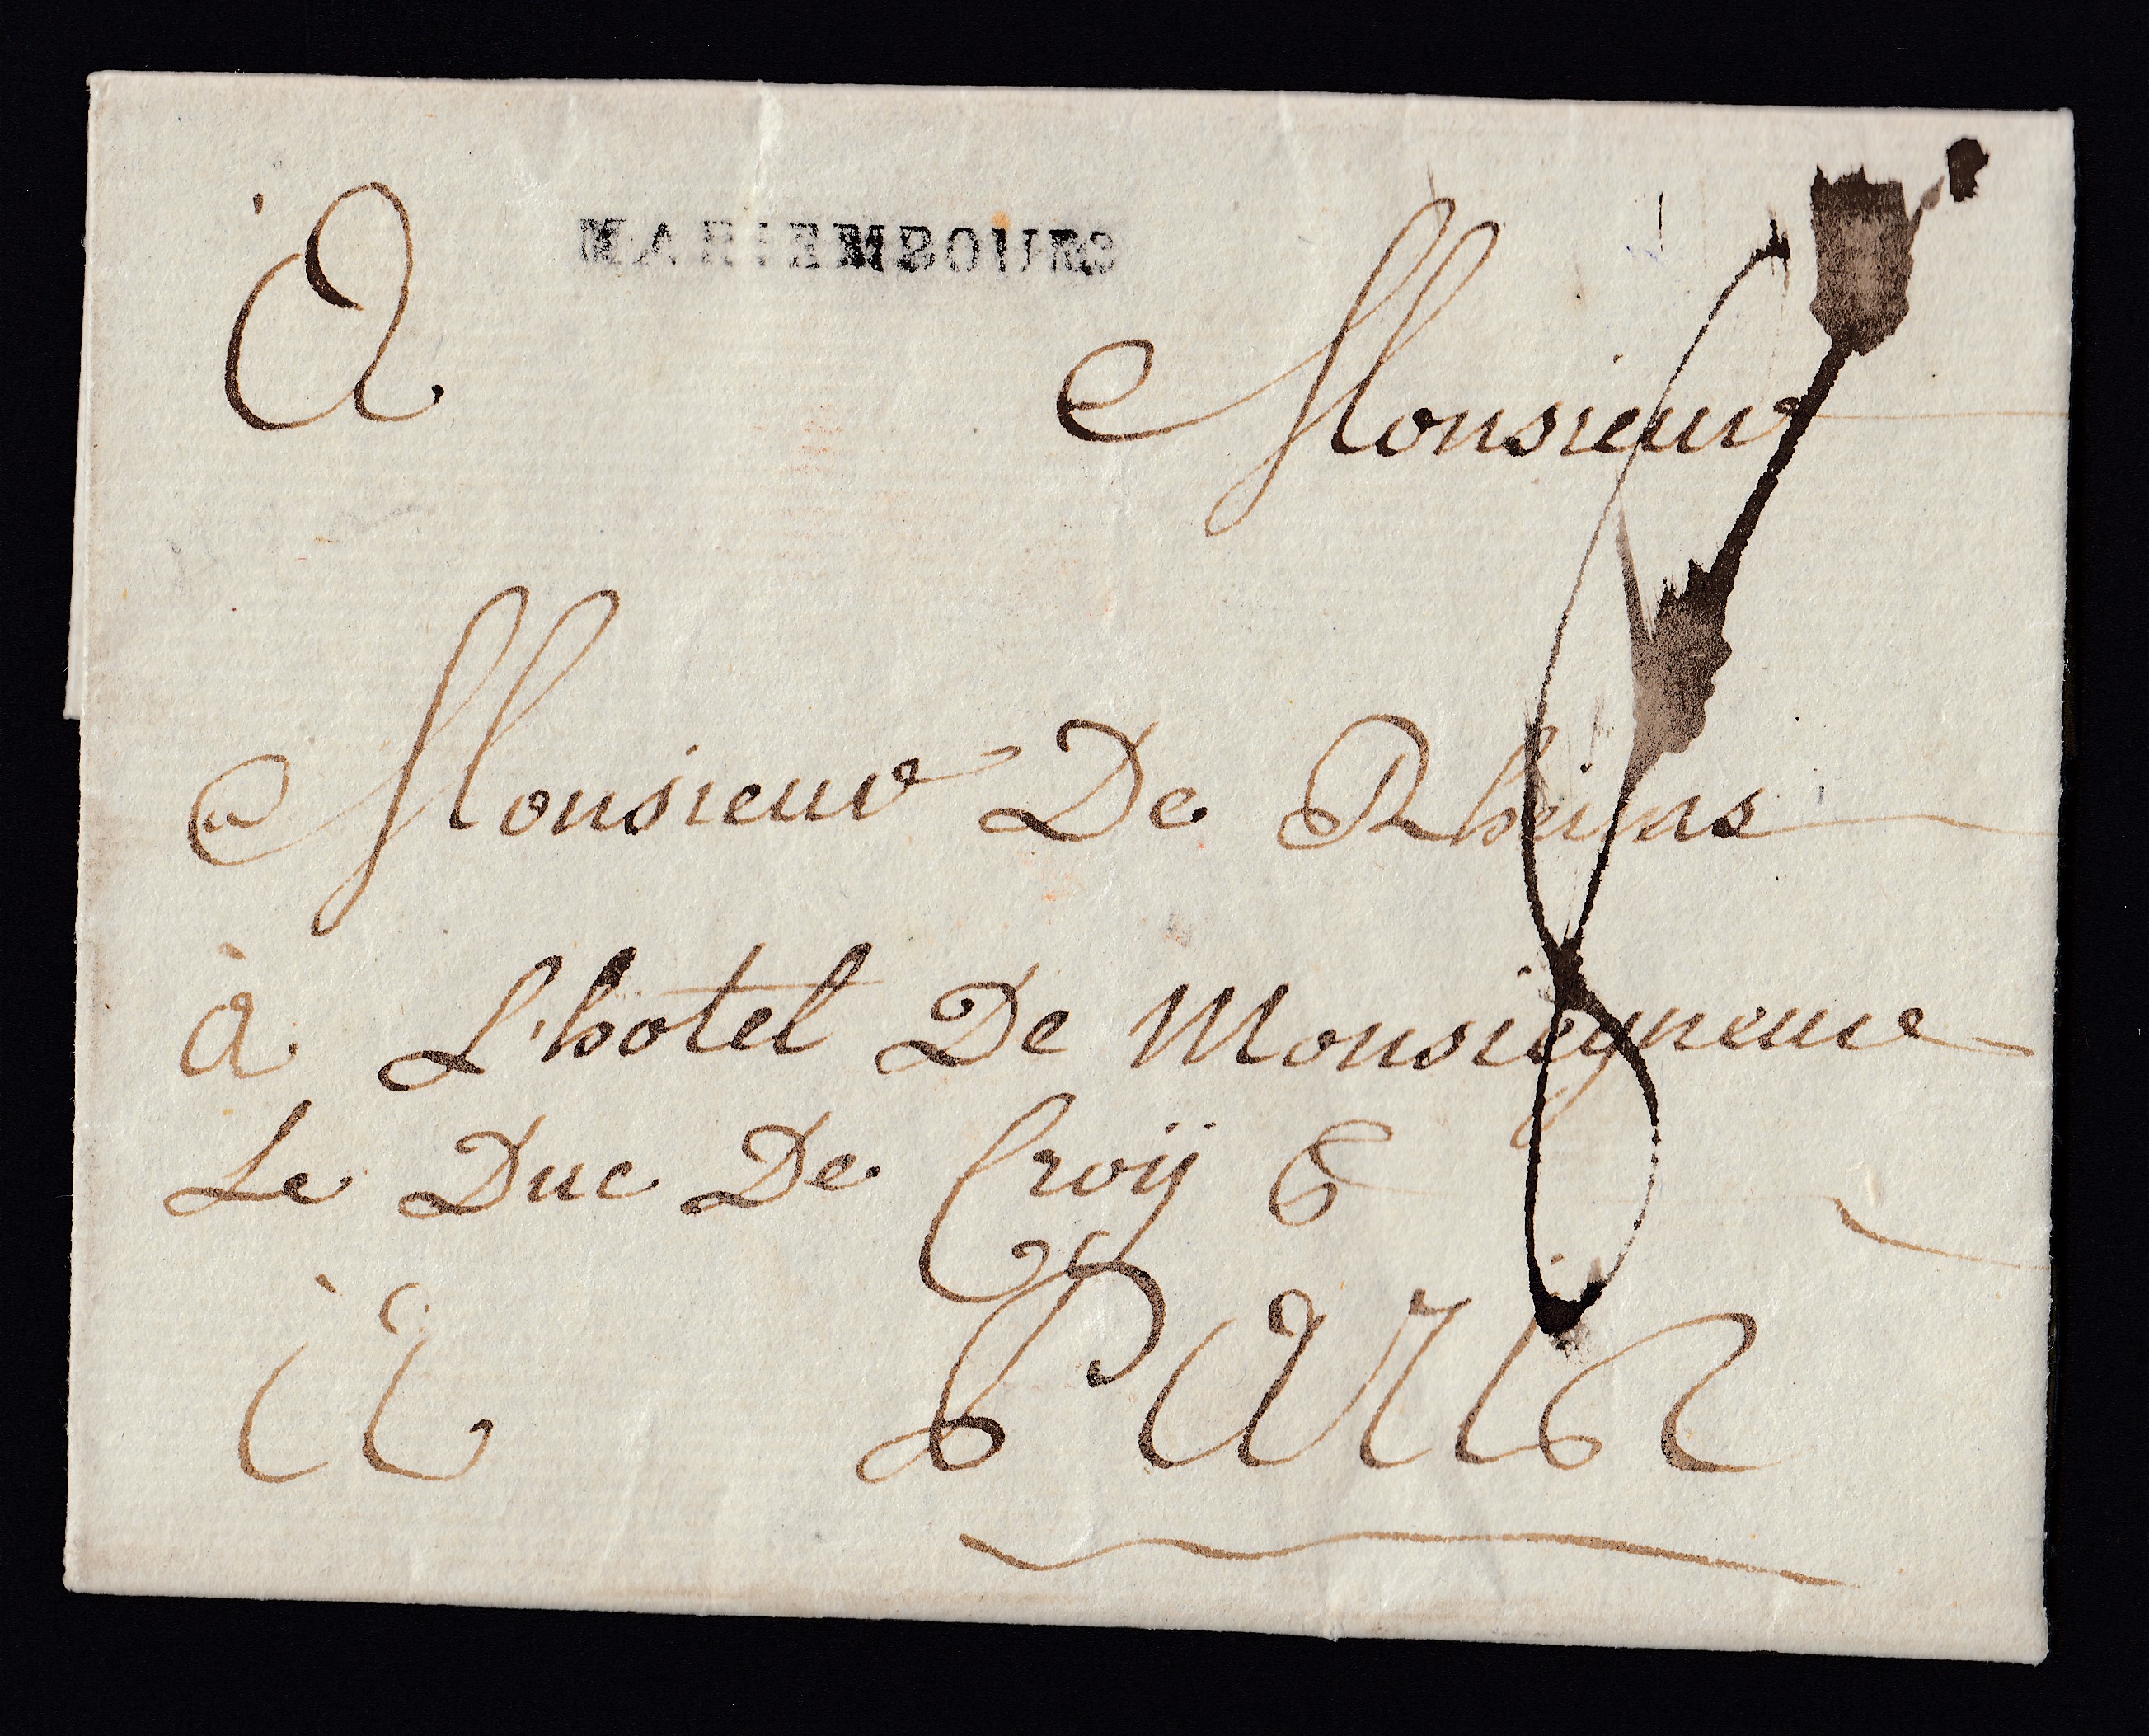 MARIEMBOURG
À Monsieur
Monsieur De Rheims
à L'hotel De Monsiegneur
Le Duc De Croÿ
À Paris
8